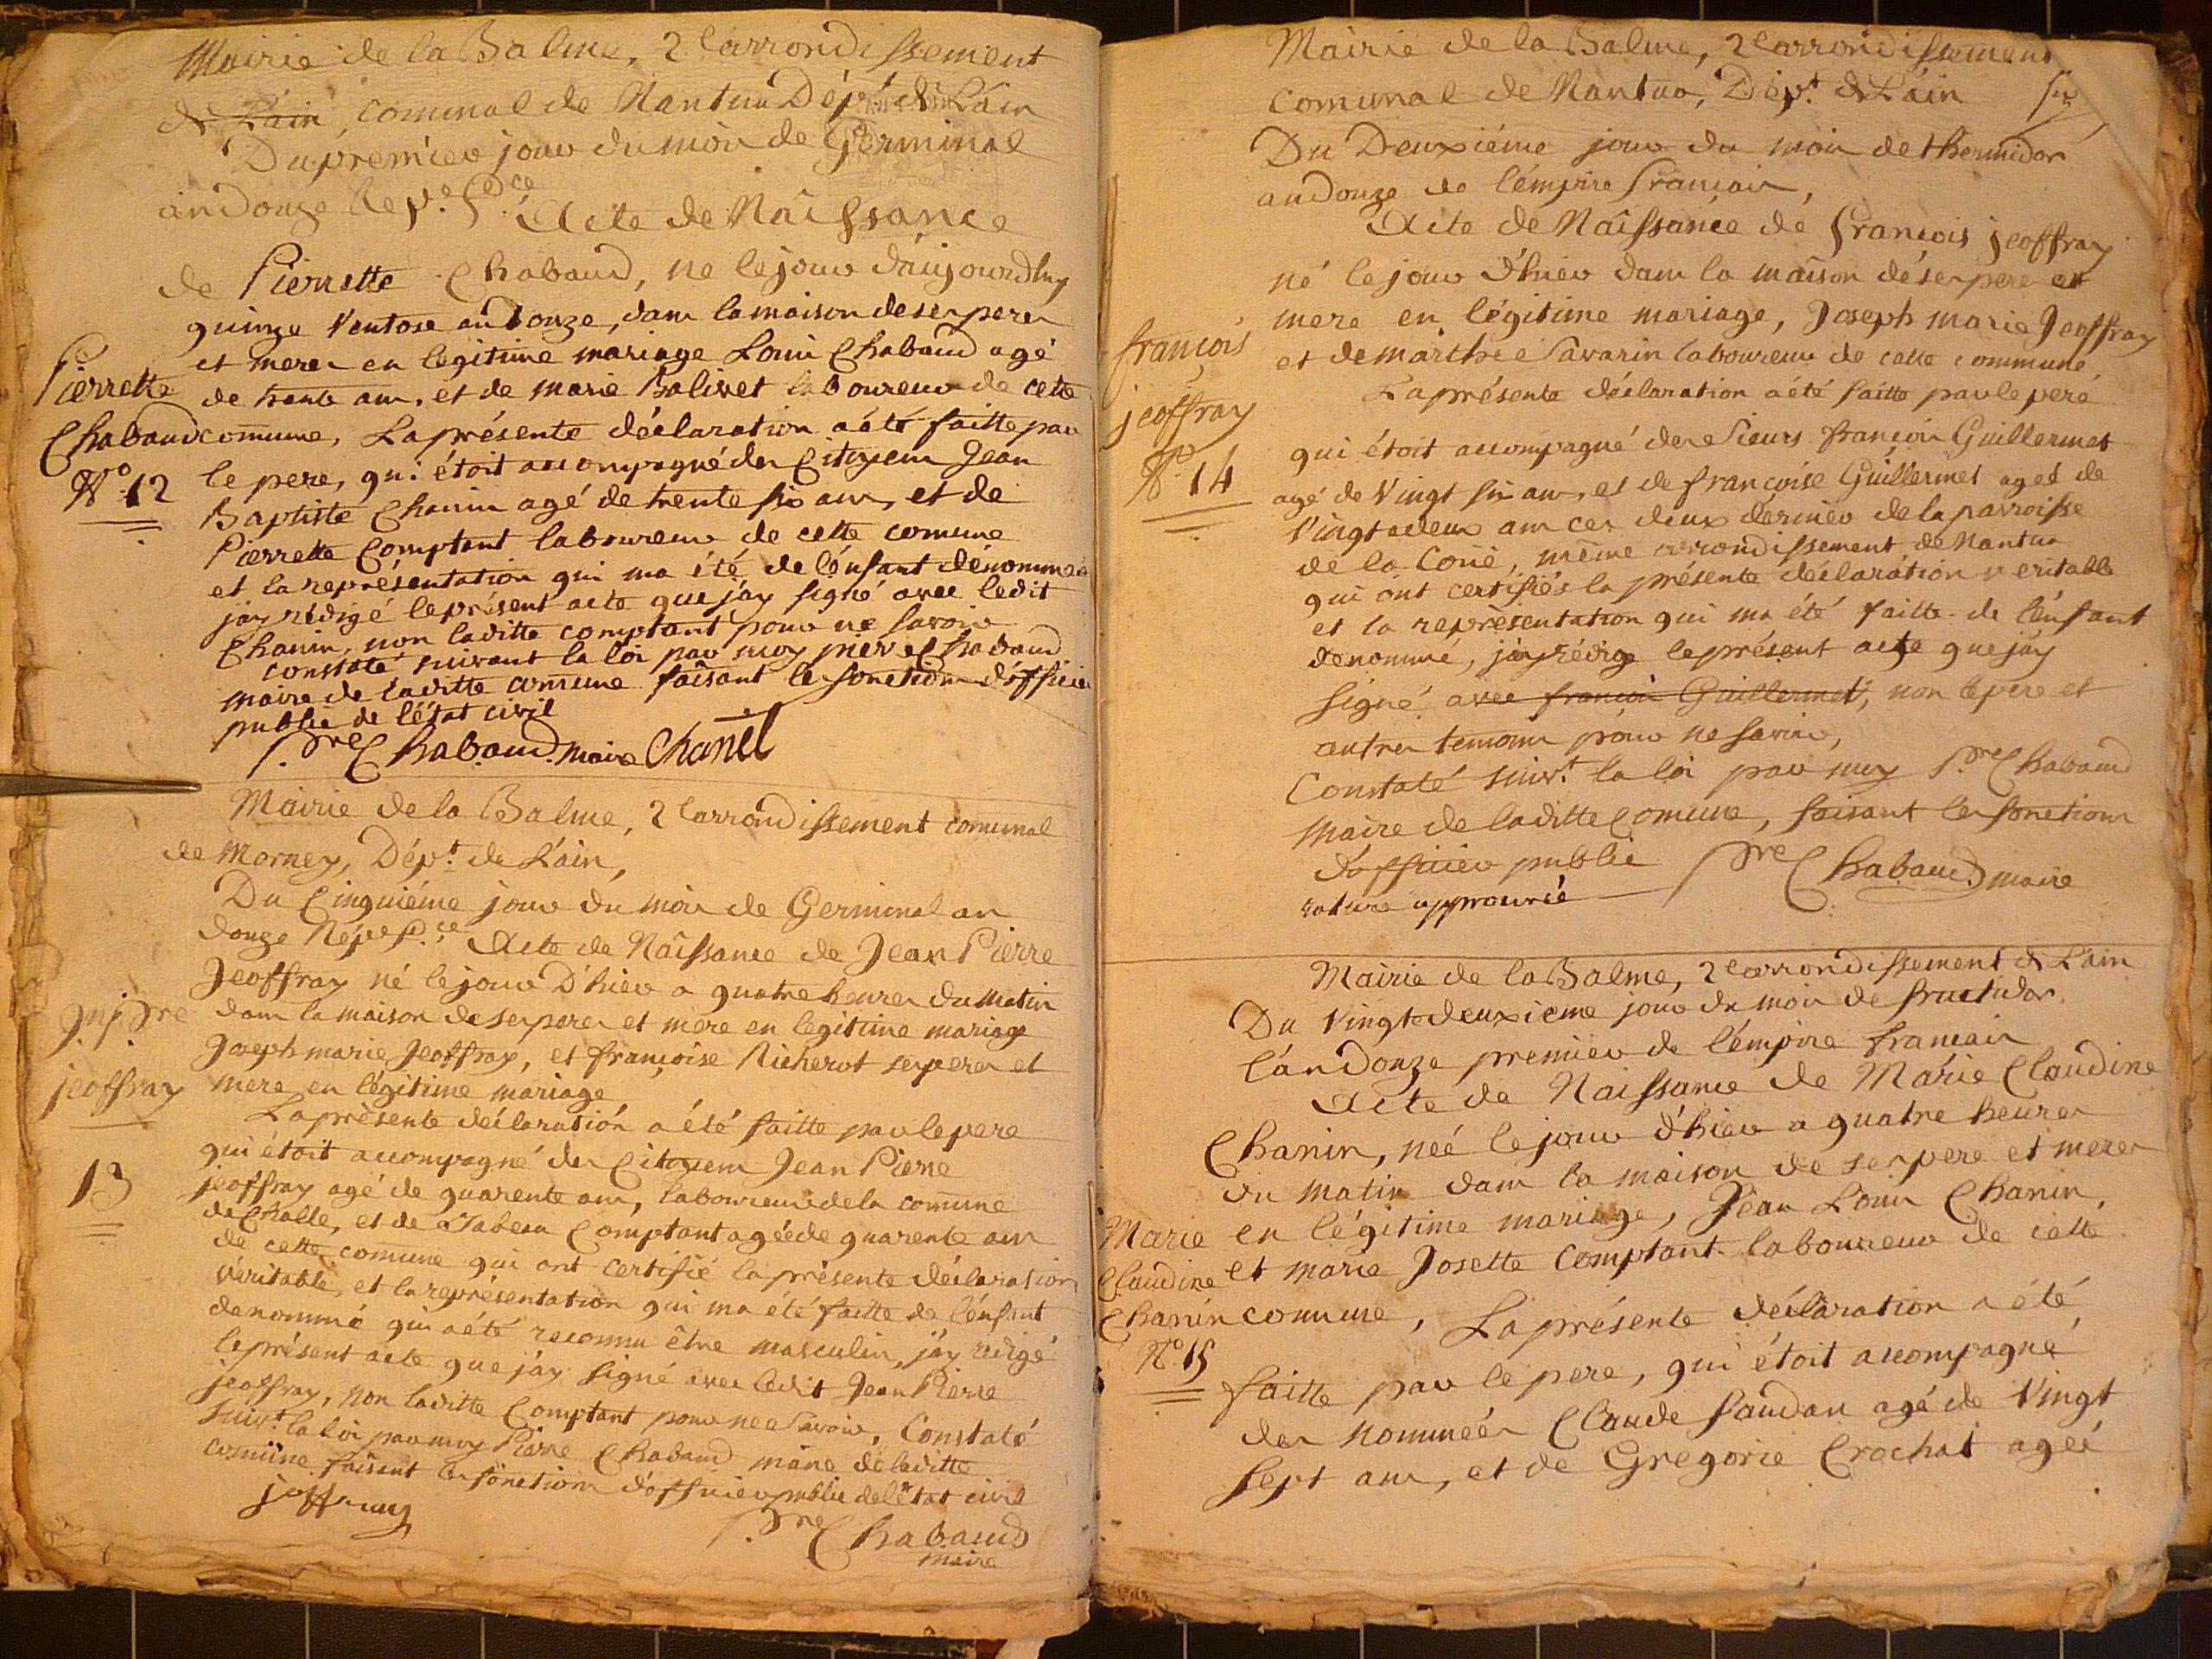 Mairie de la Balme, 2e arrondissement
de Lain, comunal de Nantua Dépt de Lain
Du premier jour du mois de Germinal
an douze Rep.e f.ce Acte de Naissance
de Pierrette Chabaud, ne le jour d'aujourdhuy
quinze Ventose an douze, dans la maison de ses peres
et meres en legitime mariage Louis Chabaud agé
de trente ans, et de marie Balivet laboureur de cette
Pierrette
Chabaud
N.o 12
comune, La présente déclaration a été faitte par
le pere, qui étoit accompagné des Citoyens Jean
Baptiste Chanin agé de trente six ans, et de
Pierrette Comptant laboureur de cette comune
et la représentation qui ma été de l'énfant dénommé
jay rédigé le présent acte que jáy signé avec ledit
Chanin, non laditte comptant pour ne savoir
constaté suivant la loi par moy pierre Chabaud
maire de laditte comune faisant les fonctions d'officier
public de l'état civil
P.re Chabaud maire Chanel
Mairie de la Balme, 2e arrondissement comunal
de Mornex, Dépt. de L'ain,
Du Cinquiéme jour du mois de Germinal an
douze Répe f.ce Acte de Naissance de Jean Pierre
Jeoffray né le jour D'hier a quatre heures du matin
dans la maison de ses peres et mere en legitime mariage
Joseph marie Jeoffray, et françoise Richerot ses peres et
mere en légitime mariage
jn pre
jeoffray
13
La présente déclaration a été faitte par le pere
qui étoit accompagné des Citoyens Jean Pierre
jeoffray agé de quarente ans, laboureur de la comune
de Challe, et de Comptant agéé de quarente ans
de cette comune qui ont certifié la présente déclaration
véritable, et la représentation qui ma été faitte de l'énfant
denommé qui a été reconnu être masculin, jáy rédigé
le présent acte que jáy signé avec ledit Jean Pierre
jeoffray, non laditte Comptant pour ne savoir, Constaté
suiv.t la loi par moy Pierre Chabaud maire de laditte
comune faisant les fonctions d'officier public de l'état civil
joffray
P.re Chabaud
maire
Mairie de la Balme, 2e arrondissement
comunal de Nantua, Dép.t de Láin
six
Du Deuxiéme jour du mois de thermidor
an douze de l'émpire francais,
Acte de Naissance de françois jeoffray
né le jour d'hier dans la maison de ses pere et
mere en légitime mariage, Joseph marie Jeoffray
et de marthe Savarin laboureur de cette commune
françois
jeoffray
N.o 14
La présente déclaration a été faitte par le peré
qui étoit accompagné des Sieurs françois Guillermet
agé de Vingt six ans, et de françoise Guillermet agéé de
Vingt deux ans ces deux derniers de la parroisse
de la Coué, même arrondissement de Nantua
qui ont certifiés la présente déclaration veritable
et la représentation qui ma été faitte de l'énfant
dénommé, jáy rédigé le présent acte que jáy
signé avec françois Guillermet, non le pere et
autres temoins pour ne savoir,
Constaté suiv.t la loi par moy P.re Chabaud
maire de laditte Comune, faisant les fonctions
d'officier public P.re Chabaud maire
rature approuvée
Mairie de la Balme, 2e arrondissement de L'ain
Du Vingt deuxieme jour du mois de fructidor
l'án douze premier de l'émpire francais
Acte de Naissance de Márie Claudine
Chanin, neé le jour d'hier a quatre heures
du matin dans la maison de ses pere et meres
en légitime mariage, Jean Louis Chanin,
et marie Josette Comptant laboureur de cette
Marie
Claudine
Chanin
N.o 15
comune, La présente déclaration a été
faitte par le pere, qui étoit accompagné
des nommeés Claude Saudan agé de Vingt
sept ans, et de Gregorie Crochat ageé